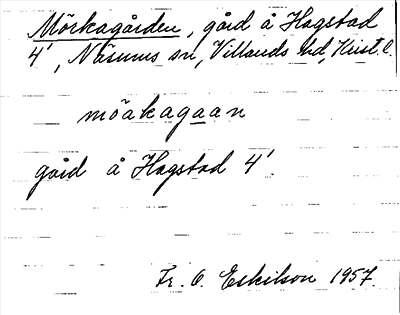 Mörkagården, gård å Hagstad
4', Näsums sn, Villands hd, Krist. l.
möakagaan
gård å Hagstad 4'.
Fr. O. Eskilson 1957.